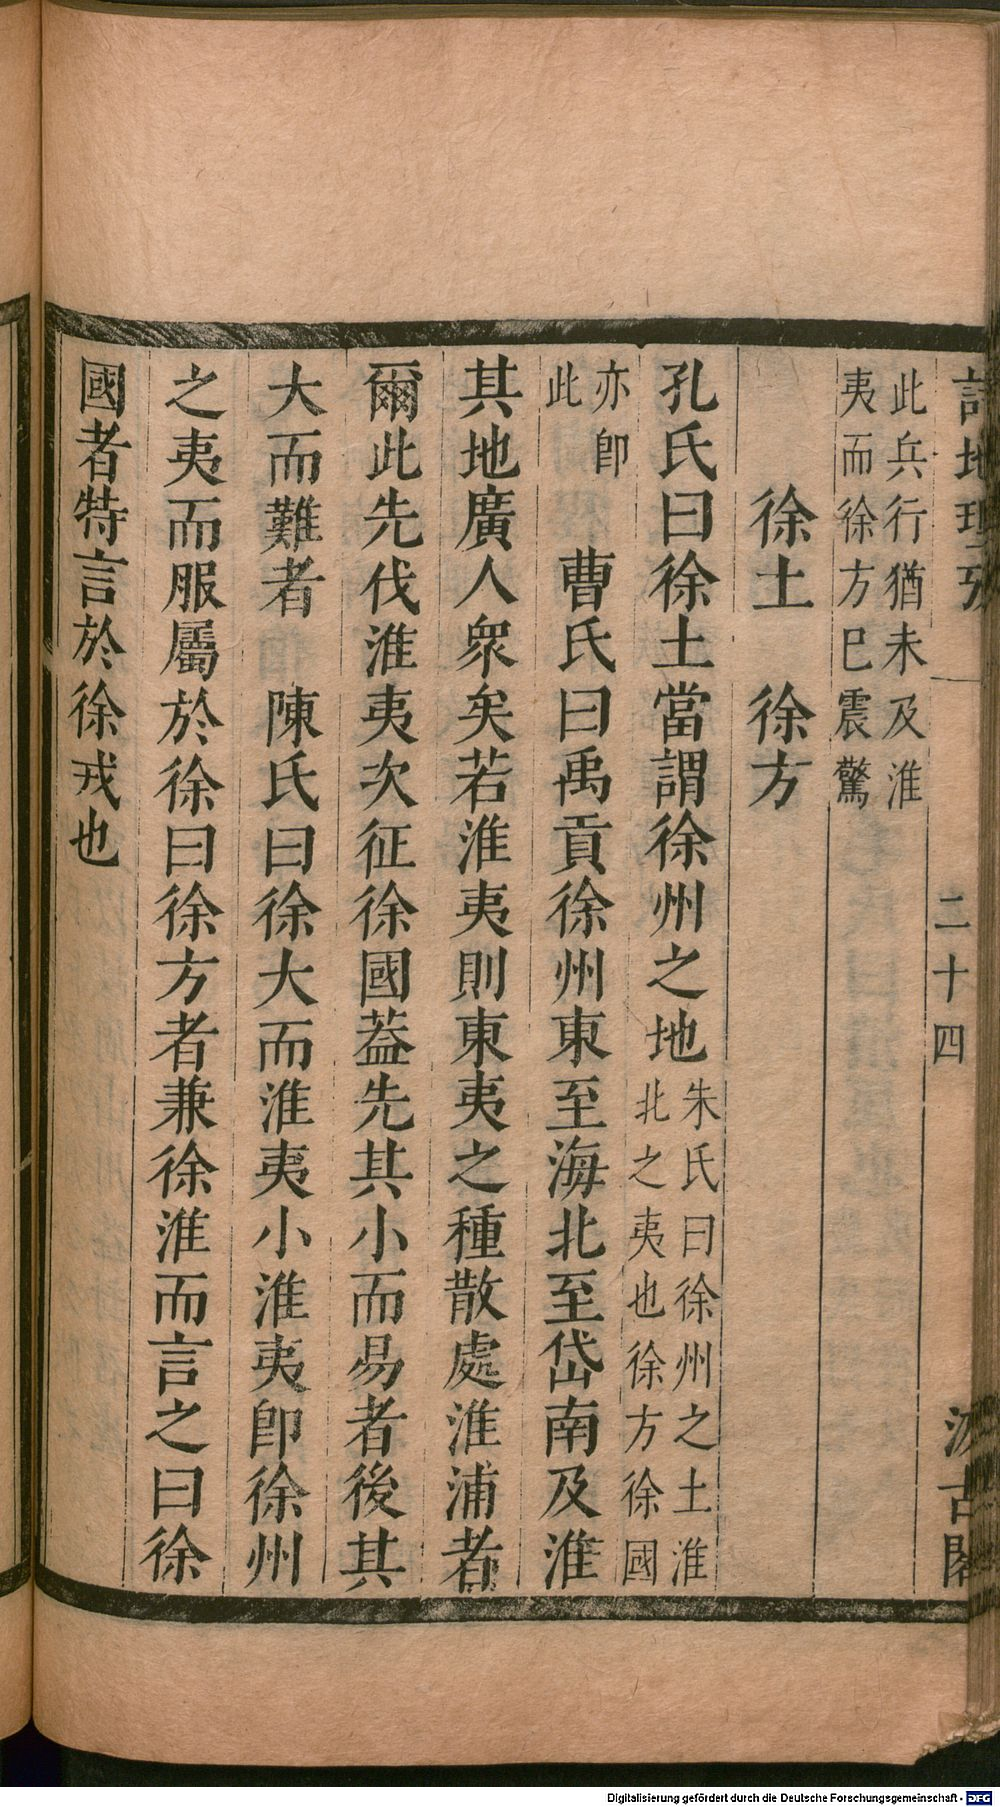 詩地理攷
二十四
汲古閣
此兵行猶未及淮
夷而徐方巳震驚
徐土　徐方
孔氏曰徐土當謂徐州之地朱氏曰徐州之土淮
北之夷也徐方徐國
亦卽
此
曹氏曰禹貢徐州東至海北至岱南及淮
其地廣人衆矣若淮夷則東夷之種散處淮浦者
爾此先伐淮夷次征徐國葢先其小而易者後其
大而難者　陳氏曰徐大而淮夷小淮夷卽徐州
之夷而服屬於徐曰徐方者兼徐淮而言之曰徐
國者特言於徐戎也
Digitalisierung gefördert durch die Deutsche Forschungsgemeinschaft - DFG